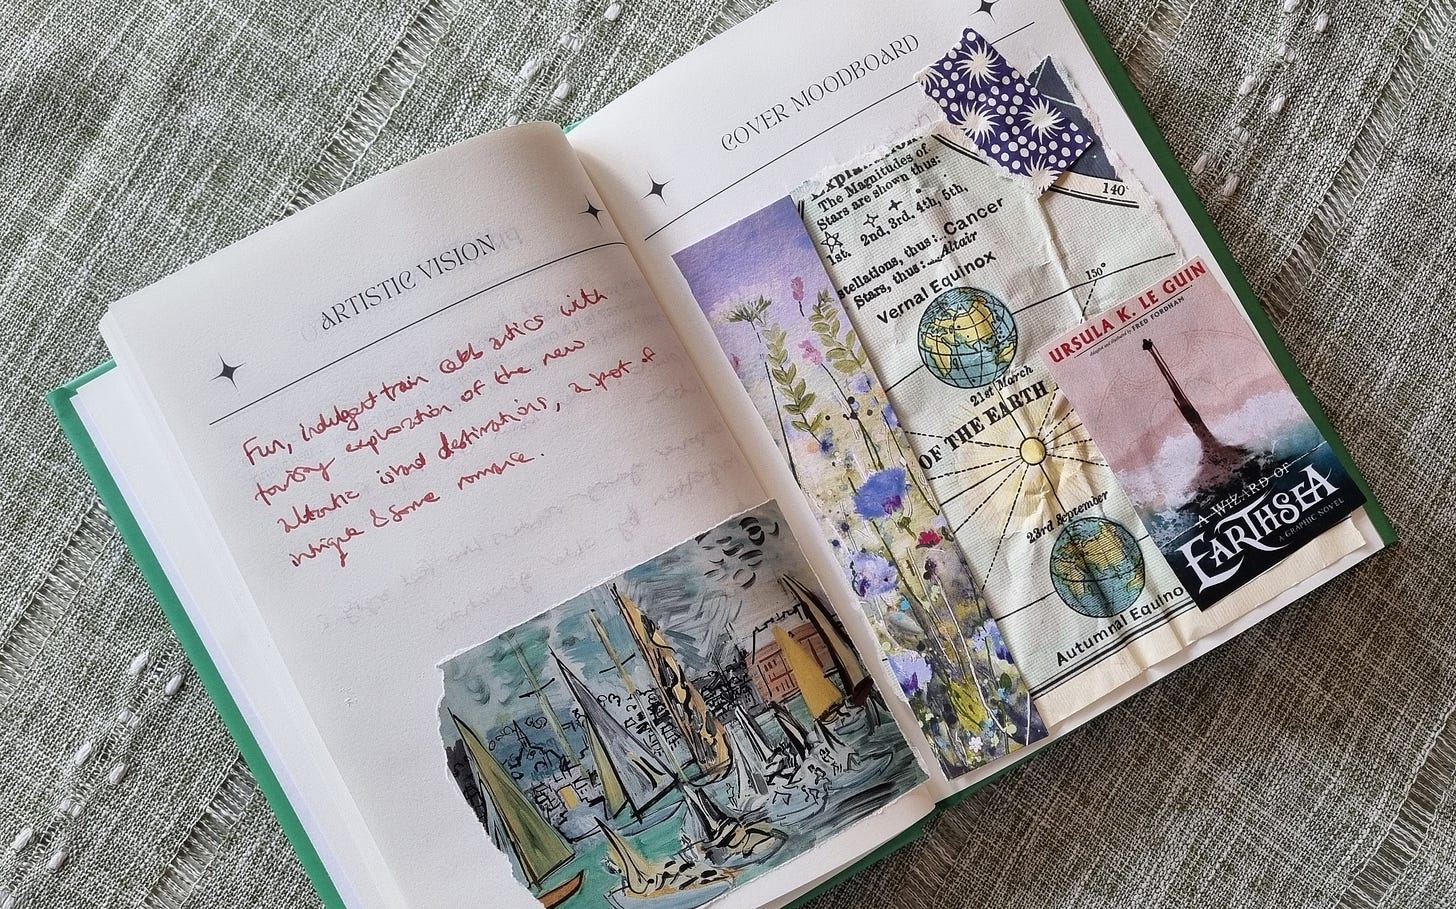 ARTISTIC VISION
Fun, indulgent train adventures with
exploration of the new
Atlantic island destinations, a spot of
intrigue & some romance.
COVER MOODBOARD
Explanation
The Magnitudes of
Stars are shown thus:
1st. 2nd, 3rd, 4th, 5th,
stellations, thus: Cancer
Stars, thus: Altair
Vernal Equinox
21st March
OF THE EARTH
23rd September
Autumnal Equino
140°
150°
URSULA K. LE GUIN
Adapted and illustrated by FRED FORDHAM
A WIZARD OF
EARTHSEA
A GRAPHIC NOVEL